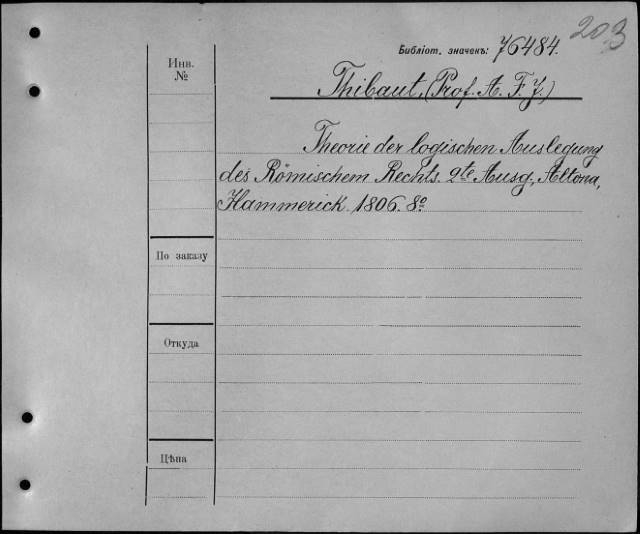 203
Библіот. значекъ: 76484.
Инв.
№
Thibaut, (Prof. A. F. J.)
Theorie der logischen Auslegung
des Römischem Rechts. 2te Ausg, Altona,
Hammerick. 1806. 8º
По заказу
Откуда
Цѣна